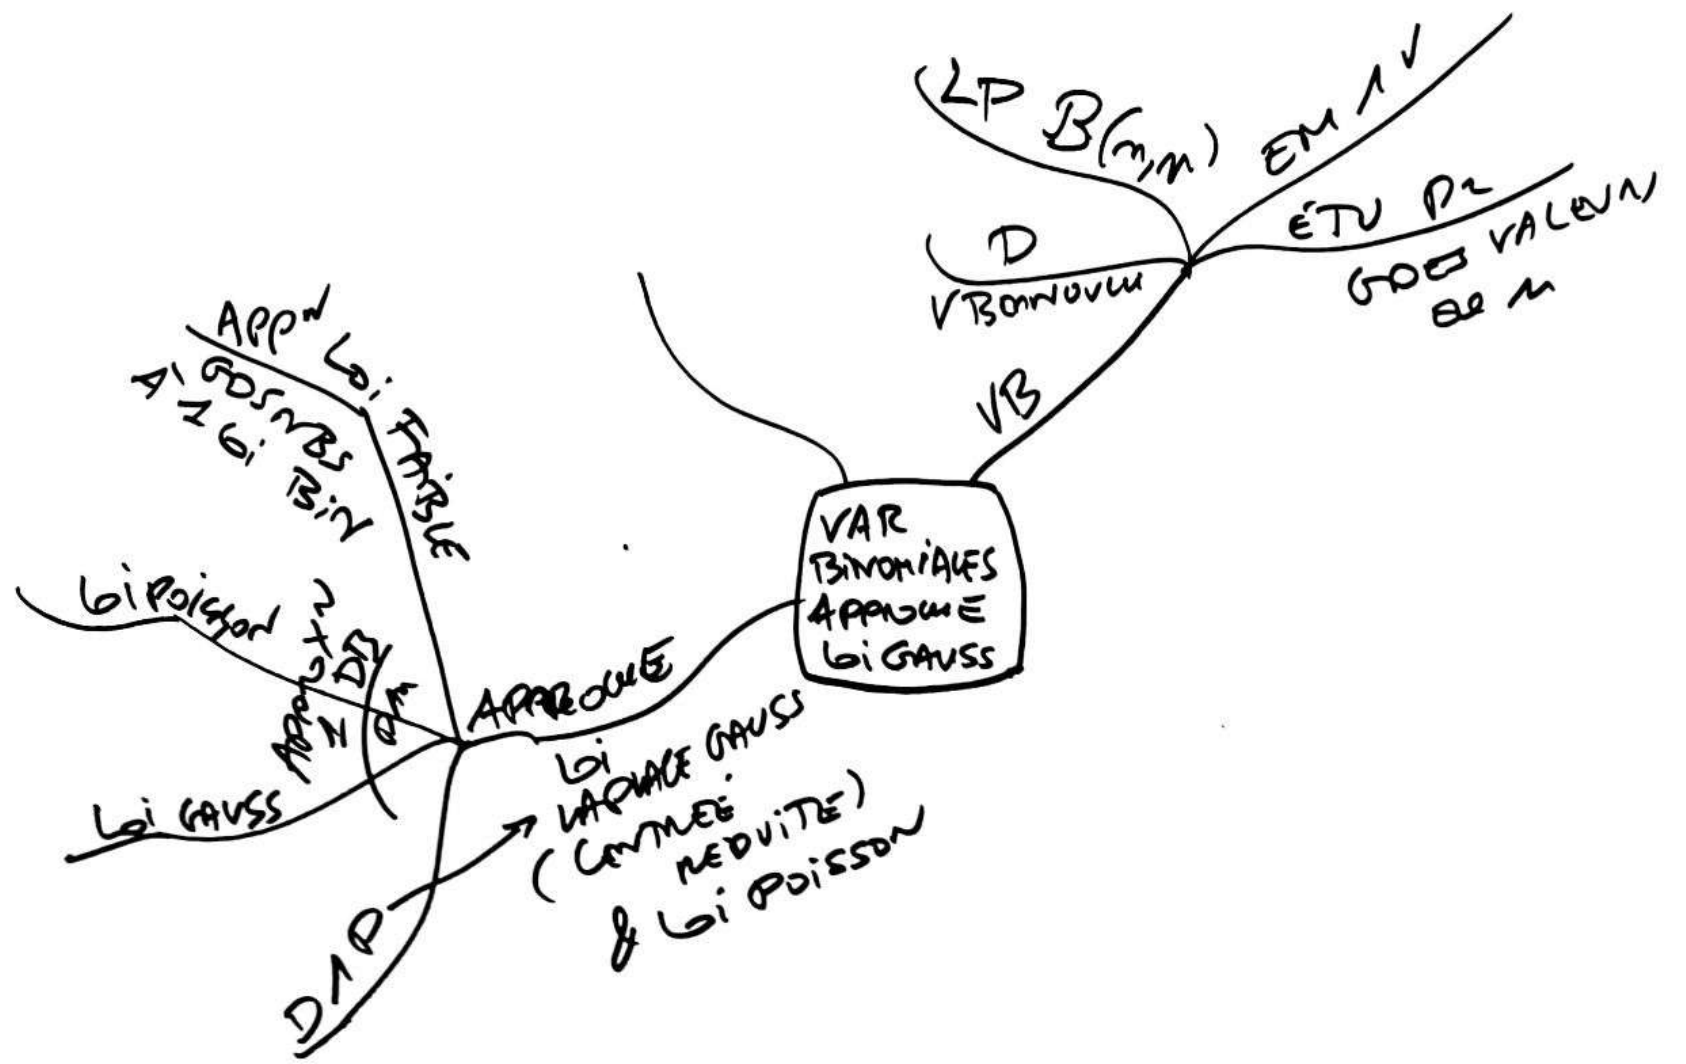 VAR
BINOMIALES
APPROCHE
Loi GAUSS
VB
LP B(n,p)
D
V BERNOULLI
EM 1 V
ÉTU Pr
GDES VALEURS
de n
APPROCHE
Loi
LAPLACE GAUSS
(CENTREE
REDUITE)
& Loi POISSON
Appn Loi FAIBLE
GDS NBS
A' 1 Loi BiN
Loi POISSON
Loi GAUSS
Approx n
D 1 P